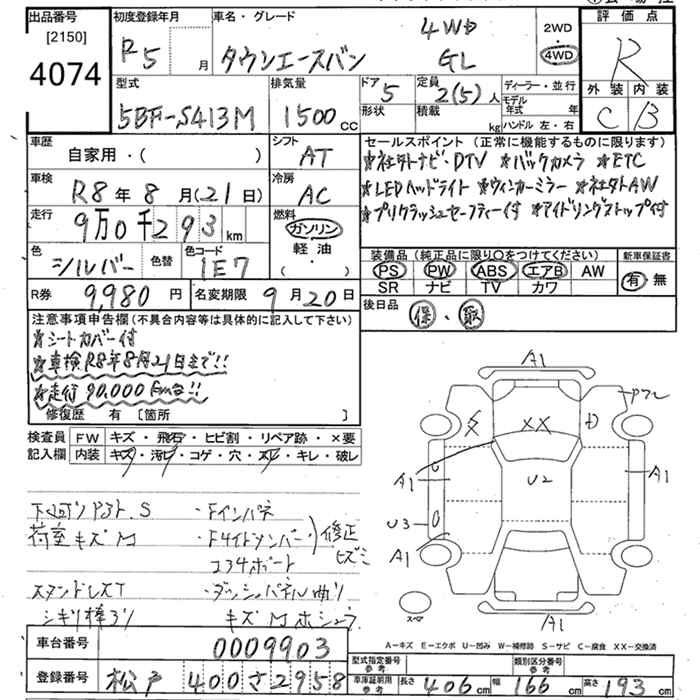 出品番号 [2150] 4074
初度登録年月 R5 月
車名・グレード タウンエースバン 4WD GL
2WD
4WD
評価点 R
外装 C 内装 B
型式 5BF-S413M
排気量 1500 cc
ドア 5 形状
定員 2(5) 人 積載 kg
ディーラー・並行
モデル年式 年
ハンドル 左・右
車歴 自家用・( )
シフト AT
車検 R8 年 8 月(21日)
冷房 AC
走行 9万0千293 km
燃料 ガソリン 軽油 ( ・ )
色 シルバー 色替 色コード 1E7
R券 9,980 円 名変期限 9月20日
セールスポイント(正常に機能するものに限ります)
*社外ナビ・DTV *バックカメラ *ETC
*LEDヘッドライト *ウィンカーミラー *社外AW
*プリクラッシュセーフティー付 *アイドリングストップ付
装備品(純正品に限り○をつけてください) 新車保証書
PS PW ABS エアB AW 有・無
SR ナビ TV カワ
後日品 保・取
注意事項申告欄(不具合内容等は具体的に記入して下さい)
*シートカバー付
*車検R8年8月21日まで!!
*走行90,000km台!!
修復歴 有 [箇所 ]
検査員記入欄 FW キズ・飛石・ヒビ割・リペア跡・×要
内装 キズ・汚レ・コゲ・穴・スレ・キレ・破レ
荷室キズM
・Fインパネ
・Fサイドメンバー
コアサポート
修正
・ダッシュパネル曲り
キズM
A1
XX
U2
A1
A1
U3
A1
A1
スペア
A-キズ E-エクボ U-凹み W-補修跡 S-サビ C-腐食 XX-交換済
車台番号 0009903
登録番号 松戸 400 さ 2958
型式指定番号 参考 類別区分番号 参考
車庫証明用 参考 長さ 406 cm 幅 166 cm 高さ 193 cm